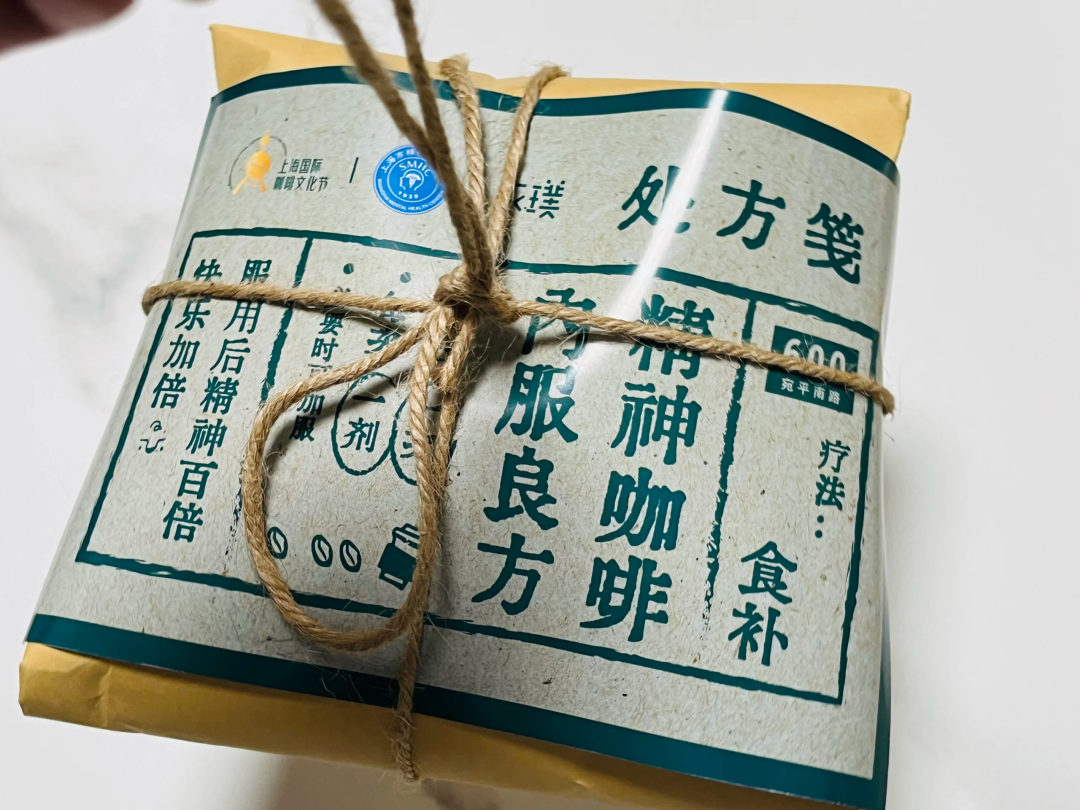 上海国际
咖啡文化节
SMHC
1935
璞
处方笺
600
宛平南路
疗法：
食补
精神咖啡
内服良方
剂
时可加服
服用后精神百倍
快乐加倍